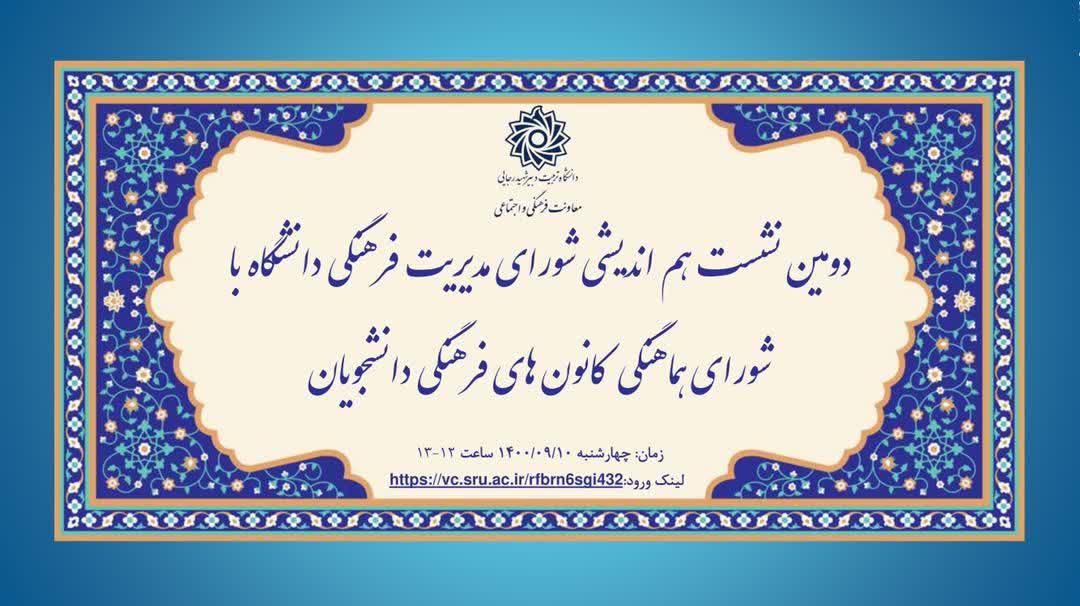 دانشگاه تربیت دبیر شهید رجایی
معاونت فرهنگی و اجتماعی
دومین نشست هم اندیشی شورای مدیریت فرهنگی دانشگاه با
شورای هماهنگی کانون های فرهنگی دانشجویان
زمان: چهارشنبه ۱۴۰۰/۰۹/۱۰ ساعت ۱۲-۱۳
لینک ورود:https://vc.sru.ac.ir/rfbrn6sgi432